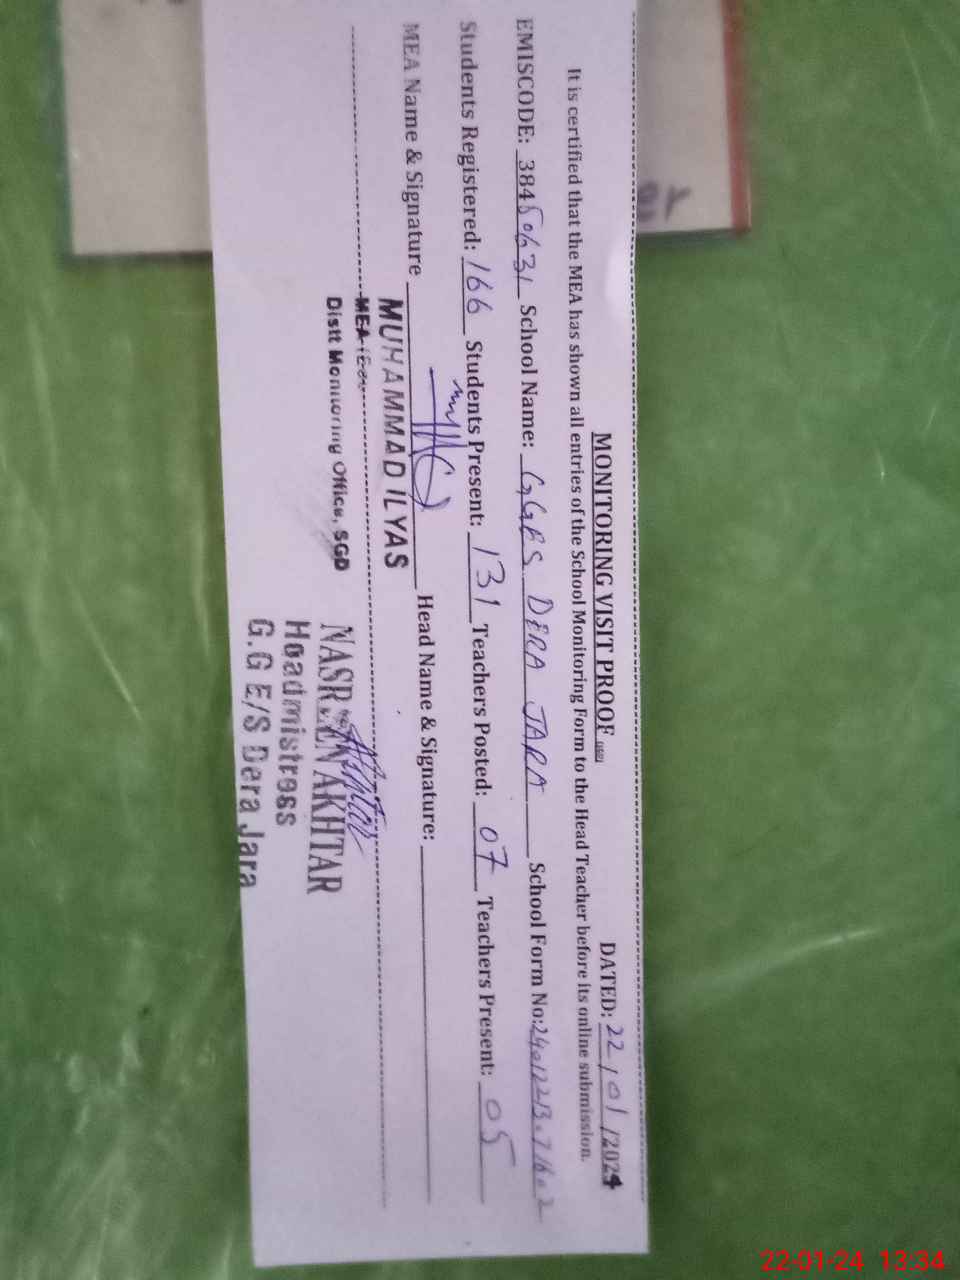 MONITORING VISIT PROOF DATED: 22/01/2024
It is certified that the MEA has shown all entries of the School Monitoring Form to the Head Teacher before its online submission.
EMISCODE: 38450631 School Name: GGES DERA JARA School Form No:
Students Registered: 166 Students Present: 131 Teachers Posted: 07 Teachers Present: 05
MEA Name & Signature Head Name & Signature:
MUHAMMAD ILYAS
MEA
Distt Monitoring Office, SGD
NASREEN AKHTAR
Headmistress
G.G E/S Dera Jara
22-01-24 13:34